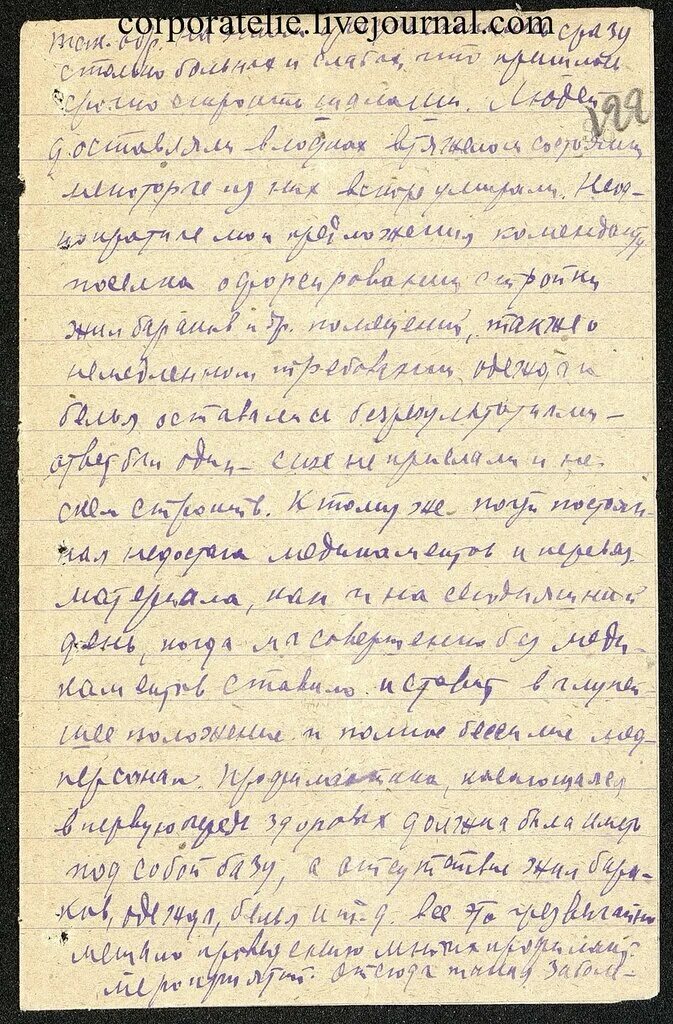 corporatelie.livejournal.com
так. обр. на сразу
столько больных и слабых, что пришлось
срочно открыть шалаши. Людей
199
доставляли в лодках в тяжелом состоянии
некоторые из них вскоре умирали. Неод-
нократные мои предложения коменданту
поселка о форсировании стройки
жил бараков и др. помещений, также о
немедленном требовании одежды и
белья оставались безрезультатными –
ответ был один – еще не прислали и не
с кем строить. К тому же почти постоян-
ная недостача медикаментов и перевяз.
материала, как и на сегодняшний
день, когда мы совершенно без меди-
каментов ставило и ставит в глупей-
шее положение и полное бессилие мед-
персонал. Профилактика, касающаяся
в первую очередь здоровых должна была иметь
под собой базу, а отсутствие жил бара-
ков, одежды, белья и т.д. все это чрезвычайно
мешало проведению многих профилакт.
мероприятий. Отсюда заболе-